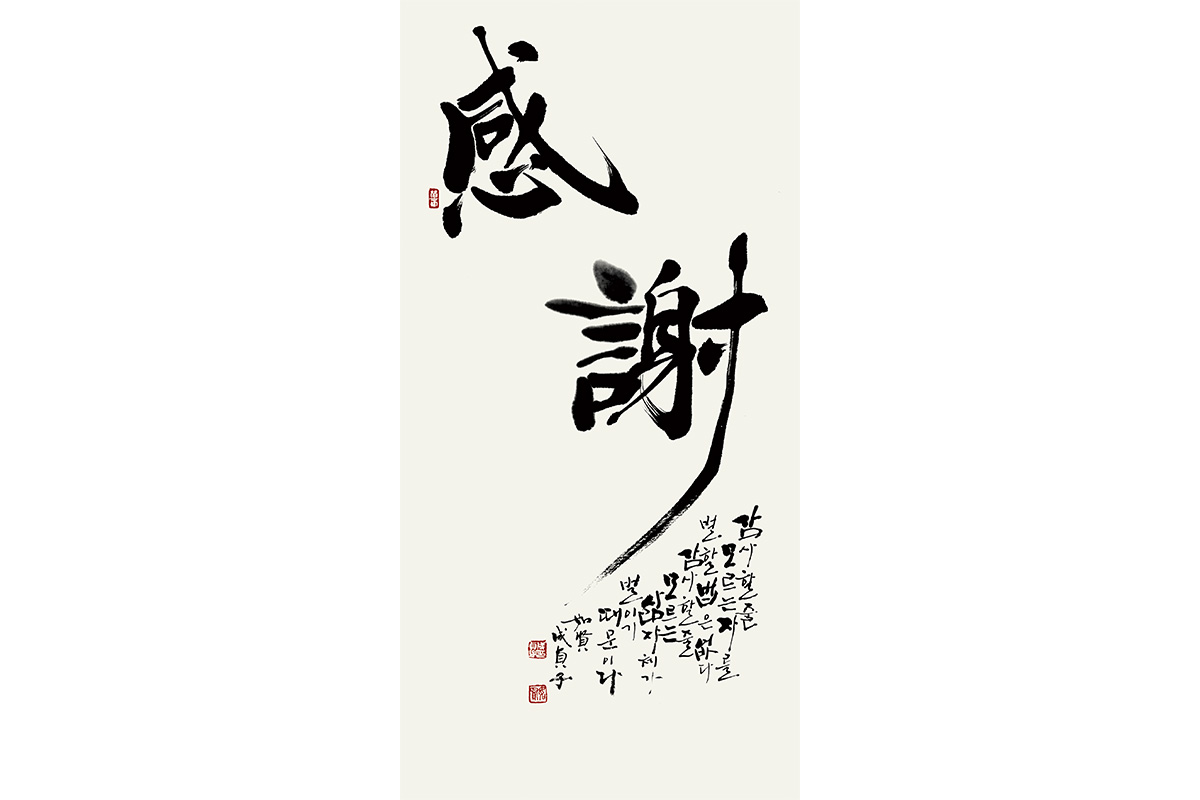 感
謝
감사할줄
모르는 자를
벌할 법은 없다
감사할줄
모르는
삶 자체가
벌이기
때문이다
如賢
成貞子